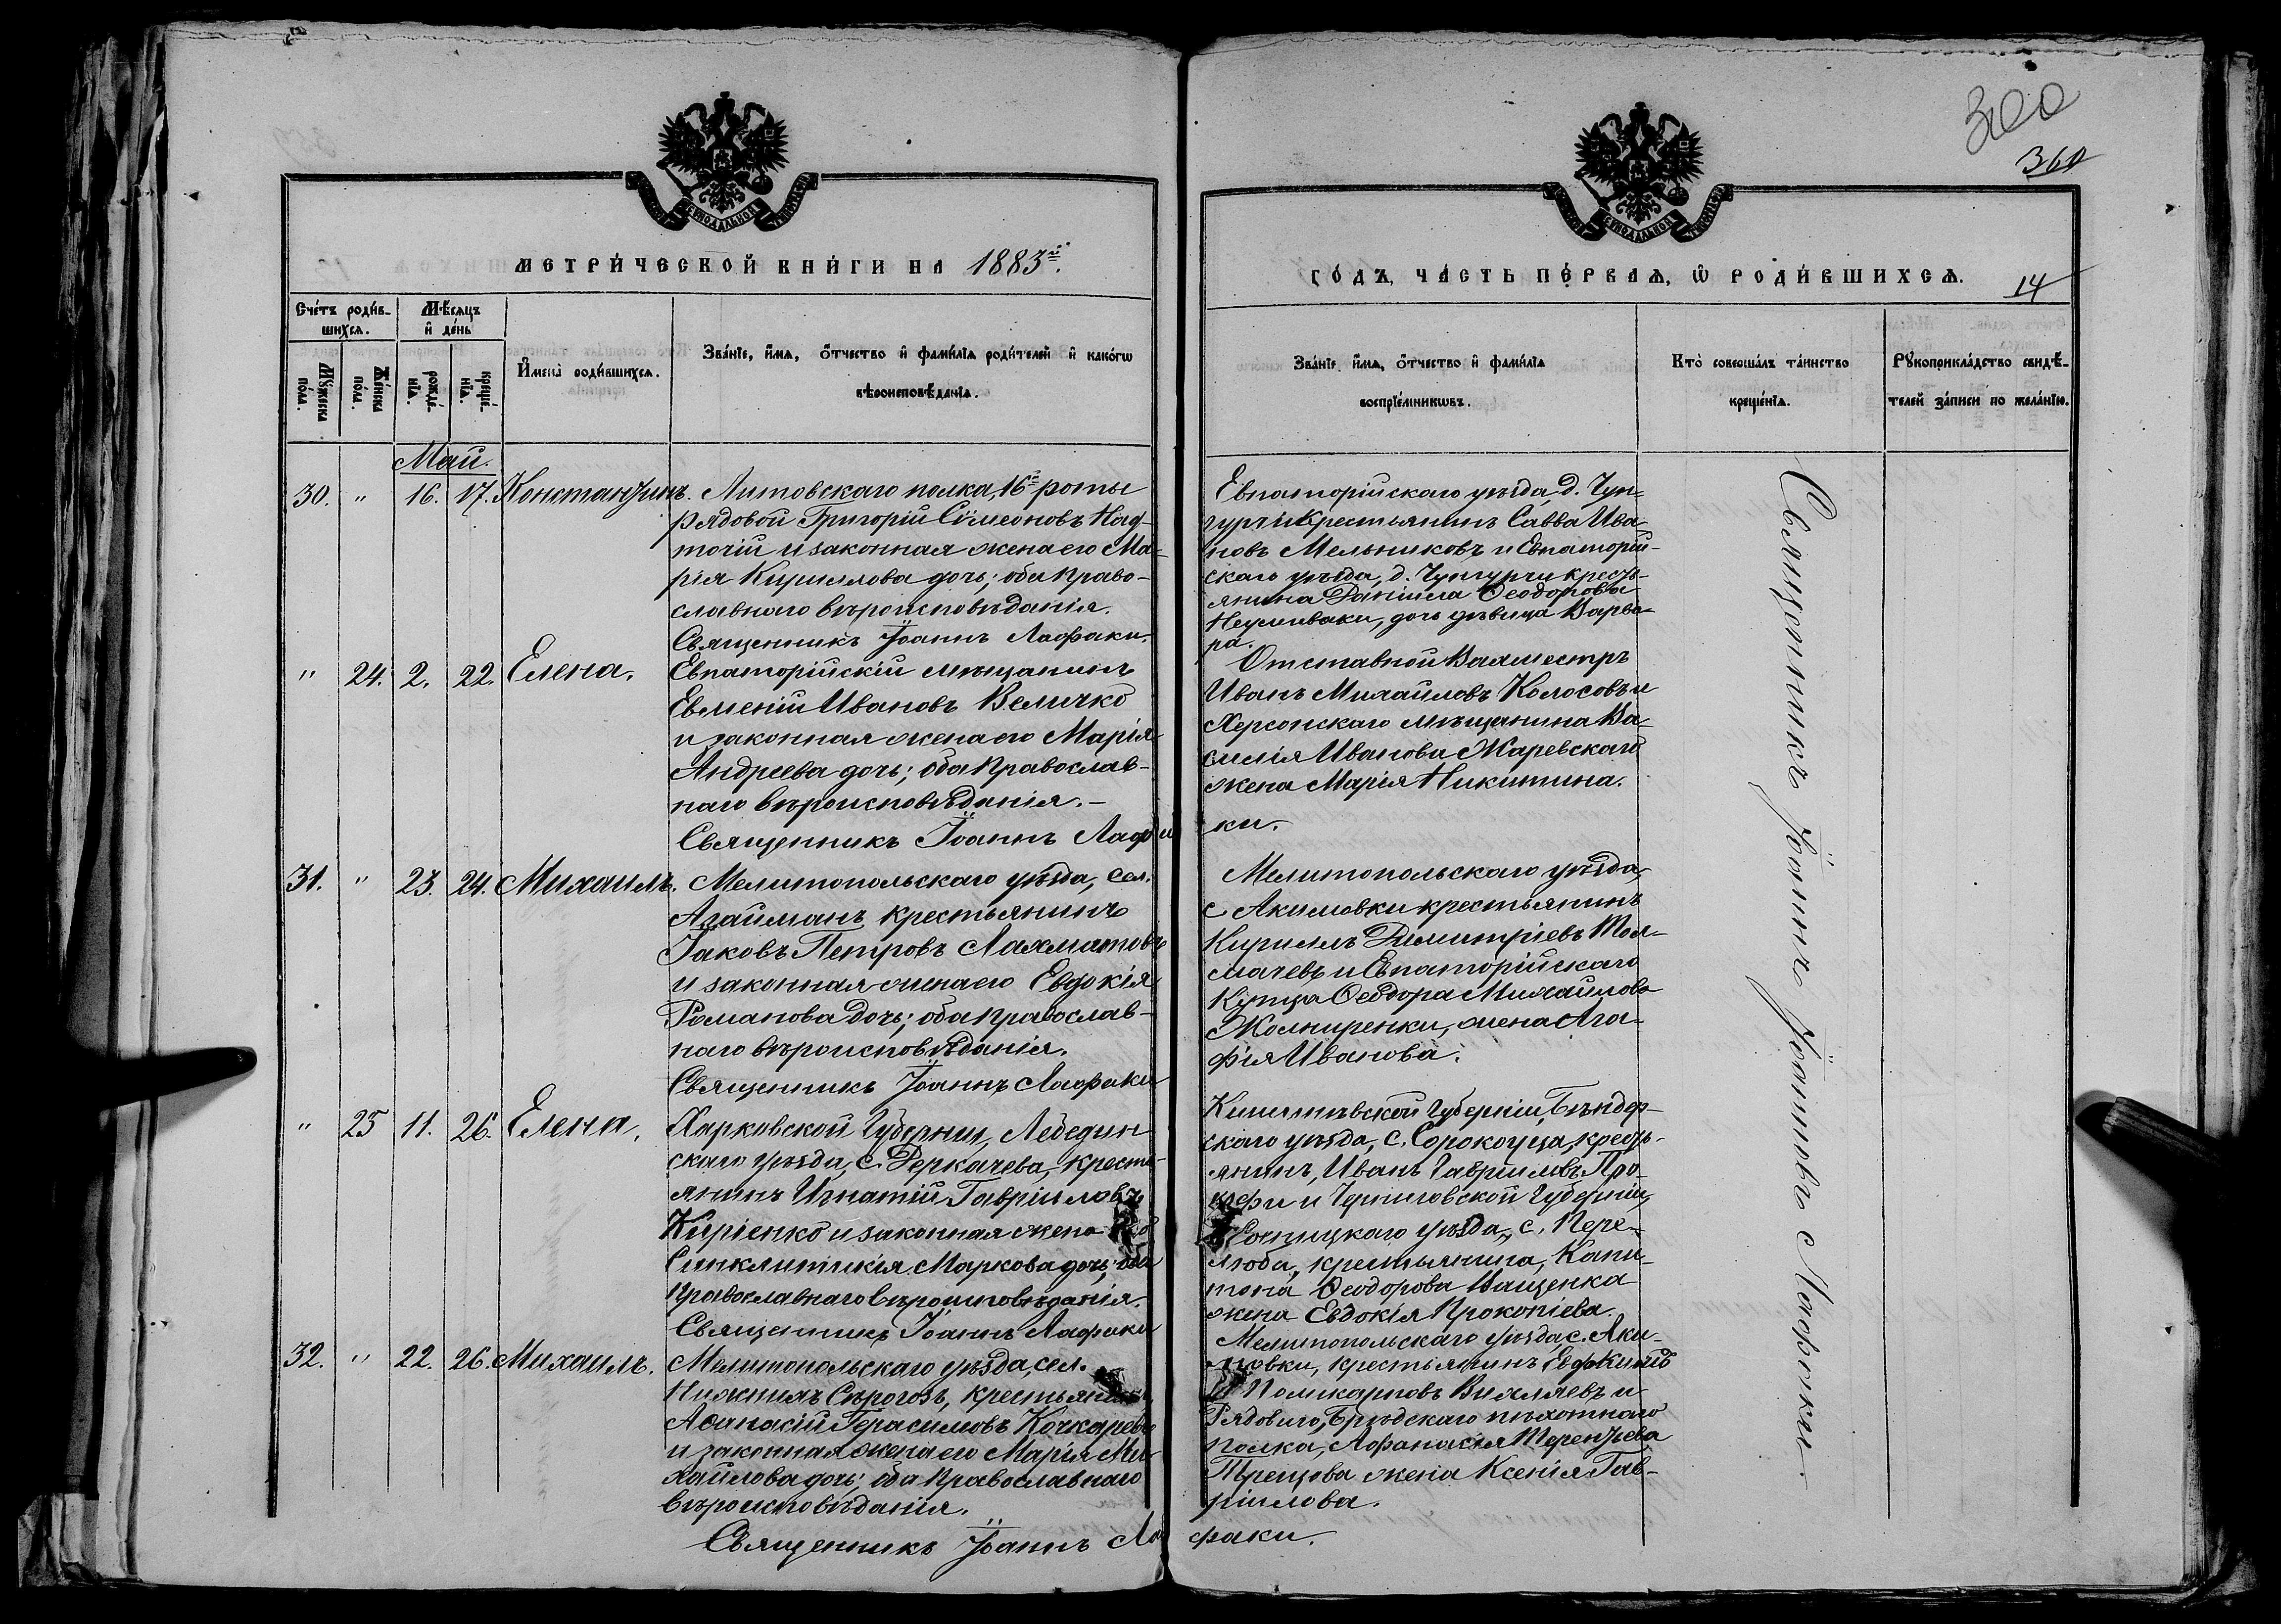 300
360
МЕТРИ́ЧЕСКОЙ КНИ́ГИ НА 1883й.
ГО́ДЪ, ЧА́СТЬ ПЕ́РВАЯ, Ѡ РОДИ́ВШИХСЯ. 14
Сче́тъ роди́в-
шихся.
Мѣ́сяцъ
и де́нь
Му́жеска по́ла.
Же́нска по́ла.
рожде́-
нія.
креще́-
нія.
Имена̀ роди́вшихся.
Зва́ніе, и́мя, ѻ́тчество и фами́лія роди́телей и како́гѡ
вѣроисповѣ́данія.
Зва́ніе, и́мя, ѻ́тчество и фами́лія
воспріе́мникѡвъ.
Кто̀ соверша́лъ та́инство
креще́нія.
Рукоприкла́дство свидѣ́-
телей за́писи по жела́нію.
Май.
30. " 16. 17. Константинъ. Литовскаго полка, 16й роты
рядовой Григорій Сѵмеоновъ Над-
точій и законная жена его Ма-
рія Кириллова дочь; оба право-
славнаго вѣроисповѣданія.
Священникъ Іоаннъ Лафаки.
Евпаторійскаго уѣзда, д. Чун-
гурчи крестьянинъ Савва Ива-
новъ Мельниковъ и Евпаторій-
скаго уѣзда, д. Чунгурчи кресть-
янина Даніила Ѳеодорова
дочь дѣвица Варва-
ра.
" 24. 2. 22. Елена.
Евпаторійскій мѣщанинъ
Евменій Ивановъ Величко
и законная жена его Марія
Андреева дочь; оба православ-
наго вѣроисповѣданія.-
Священникъ Іоаннъ Лафа
Отставной Вахмистръ
Иванъ Михайловъ Колосовъ и
Херсонскаго мѣщанина Ва-
силія Иванова Жаревскаго
жена Марія Никитина.
ки.
31. " 23. 24. Михаилъ. Мелитопольскаго уѣзда, сел.
Агайманъ крестьянинъ
Іаковъ Петровъ Лахматовъ
и законная жена его Евдокія
Романова дочь; оба православ-
наго вѣроисповѣданія.
Священникъ Іоаннъ Лафаки
Мелитопольскаго уѣзда,
с Акимовки крестьянинъ
Кириллъ Димитріевъ Тол-
мачевъ и Евпаторійскаго
Купца Ѳеодора Михайлова
Жолниренки, жена Ага-
фія Иванова.
" 25 11. 26. Елена.
Харковской Губерніи, Лебедин
скаго уѣзда, с. Деркачева, кресть-
янинъ Игнатій Гавріиловъ
Киріенко и законная жена его
Синклитикія Маркова дочь; оба
православнаго вѣроисповѣданія.
Священникъ Іоаннъ Лафаки
Кишиневской Губерніи, Бендер-
скаго уѣзда, с. Сорокоуца, кресть-
янинъ, Иванъ Гавріиловъ Про-
и Черниговской Губерніи,
Сосницкаго уѣзда, с. Пере-
люба, крестьянина, Капи-
тона Ѳеодорова Ващенка
жена Евдокія Прокопіева.
32. " 22. 26. Михаилъ. Мелитопольскаго уѣзда, сел.
Нижнихъ Сѣрогозъ, крестьянинъ
Аѳанасій Герасимовъ Кочкаревъ
и законная жена его Марія Ми-
хайлова дочь; оба православнаго
вѣроисповѣданія.
Священникъ Іоаннъ Ла
Мелитопольскаго уѣзда, с. Аки-
мовки, крестьянинъ
Поликарповъ Вихляевъ и
Рядоваго, пѣхотнаго
полка, Терентьева
жена Ксенія Гав-
ріилова.
факи.
Священникъ Іоаннъ Іоанновъ Лафаки.